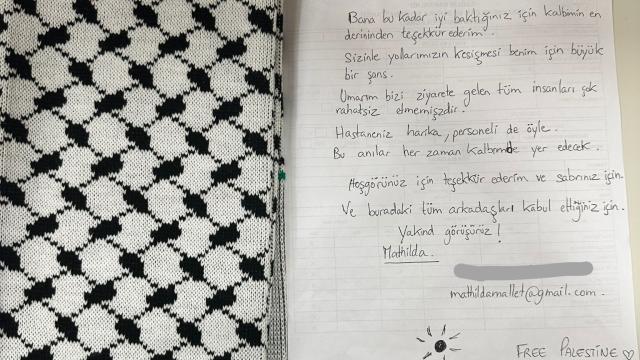 Bana bu kadar iyi baktığınız için kalbimin en
derininden teşekkür ederim.
Sizinle yollarımızın kesişmesi benim için büyük
bir şans.
Umarım bizi ziyarete gelen tüm insanları çok
rahatsiz etmemişzdir.
Hastaneniz harika, personeli de öyle.
Bu anılar her zaman kalbimde yer edecek.
Hoşgörünüz için teşekkür ederim ve sabrınız için.
Ve buradaki tüm arkadaşları kabul ettiğiniz için.
Yakind görüşürüz!
Mathilda.
mathildamallet@gmail.com.
FREE PALESTINE